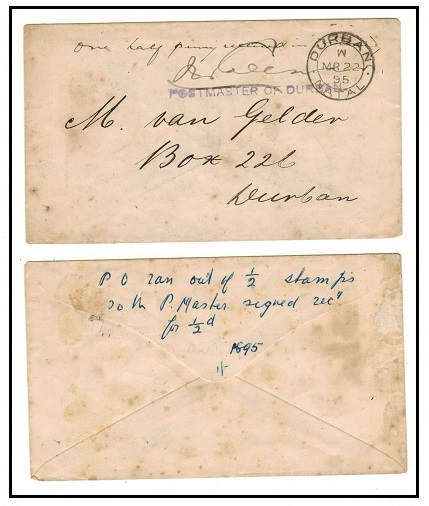 one half penny in
POSTMASTER OF DURBAN
DURBAN
W
MR 22
95
NATAL
M. van Gelder
Box 226
Durban
P O ran out of 1/2 stamps
so th P. Master signed rec"
for 1/2 d
1895